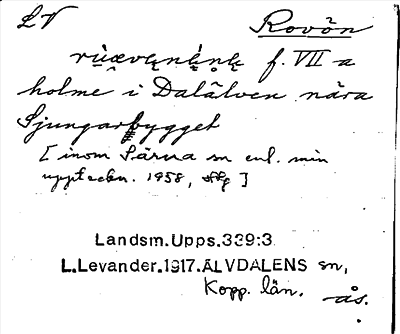 LV Rovön
f. VII a
holme i Dalälven nära
Sjungarbygget
[inom Särna sn enl. min
uppteckn. 1958, ]
Landsm. Upps. 339:3
L. Levander. 1917. ÄLVDALENS sn,
Kopp. län.
ås.